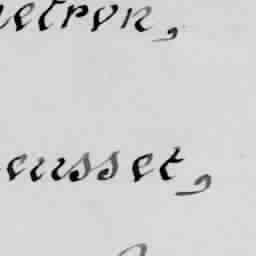 netron,
eusset,